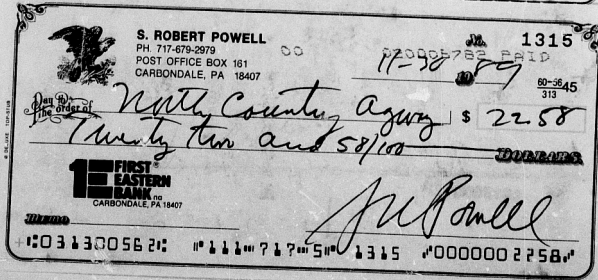 S. ROBERT POWELL
PH. 717-679-2979
POST OFFICE BOX 161
CARBONDALE, PA 18407
No. 1315
PAID
11-30 19 89
60-56 45
313
Pay To The order of North County Agency $ 22.58
Twenty two and 58/100 DOLLARS
1E FIRST EASTERN BANK na
CARBONDALE, PA 18407
MEMO
Powell
⑆031300562⑆ ⑈111⑉717⑉5⑈ 1315 ⑈0000002258⑈